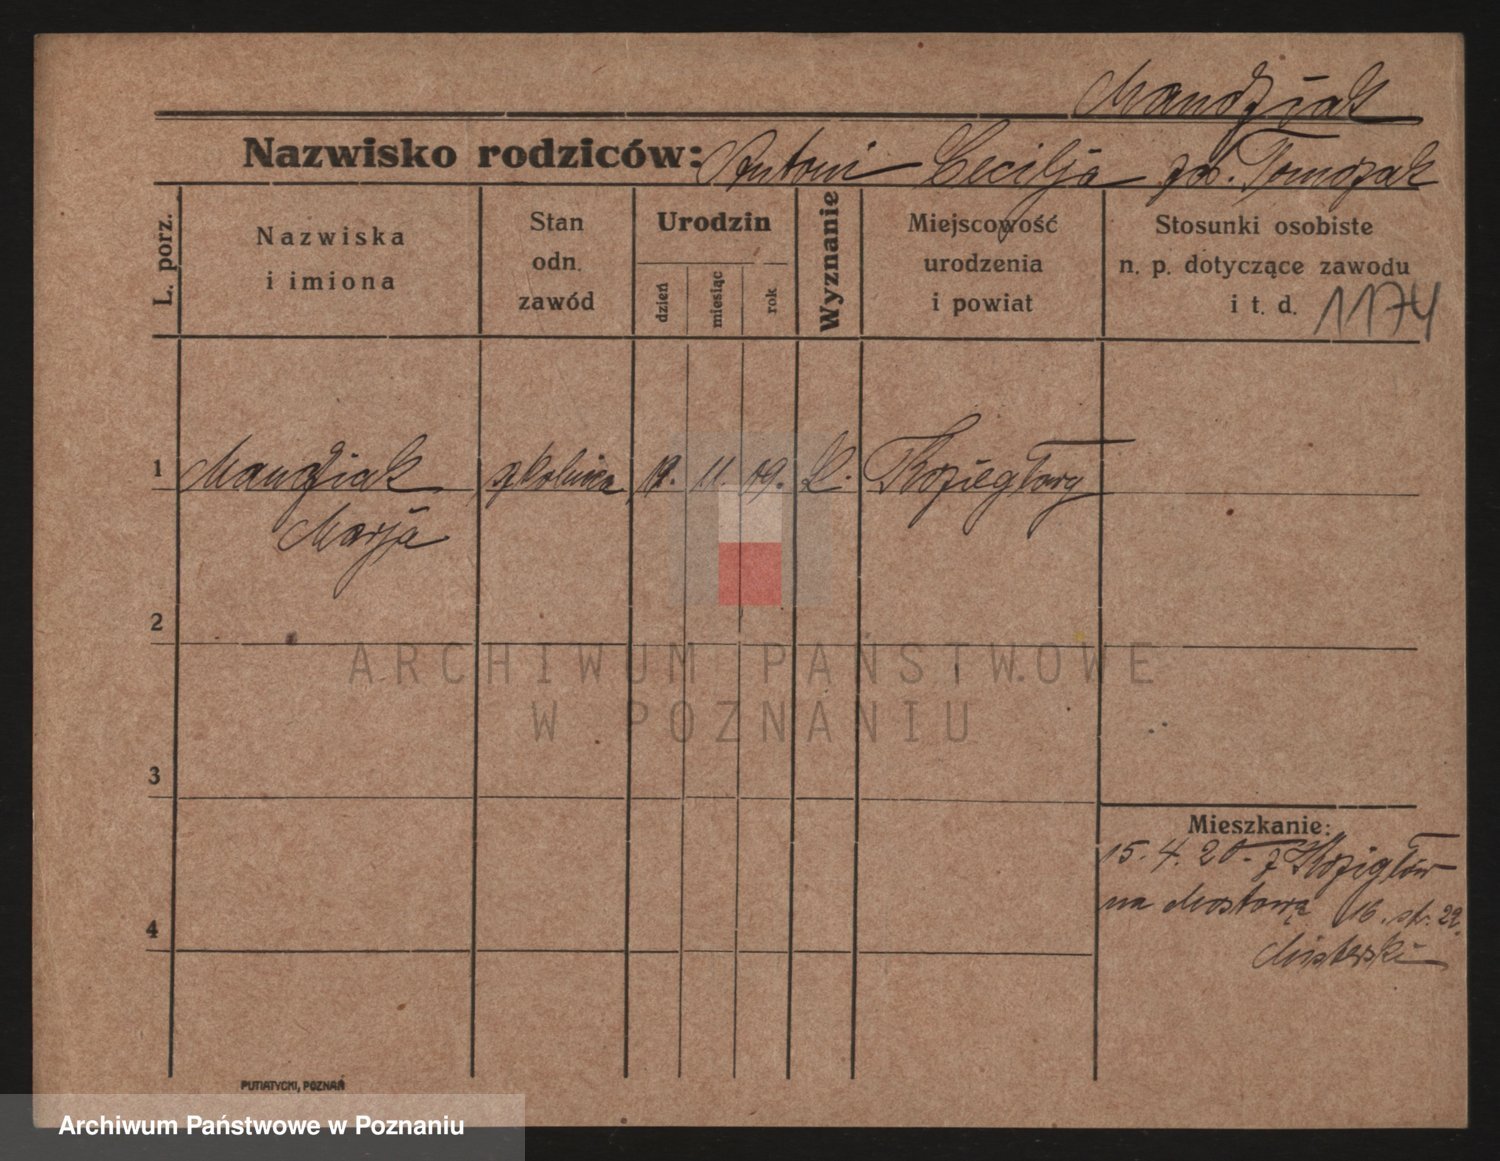 Mandziak
Nazwisko rodziców: Antoni Cecilja zd. Tomczak
L. porz.
Nazwiska
i imiona
Stan
odn.
zawód
Urodzin
dzień
miesiąc
rok
Wyznanie
Miejscowość
urodzenia
i powiat
Stosunki osobiste
n. p. dotyczące zawodu
i t. d. 1174
1 Mandziak szkolnica 19. 11. 09. k. Koziegłowy
Marja
2
3
4
Mieszkanie:
15. 4. 20. z Koziegłów
na Mostową 16. str. 22.
Misterski
PUTIATYCKI, POZNAŃ
ARCHIWUM PAŃSTWOWE
W POZNANIU
Archiwum Państwowe w Poznaniu